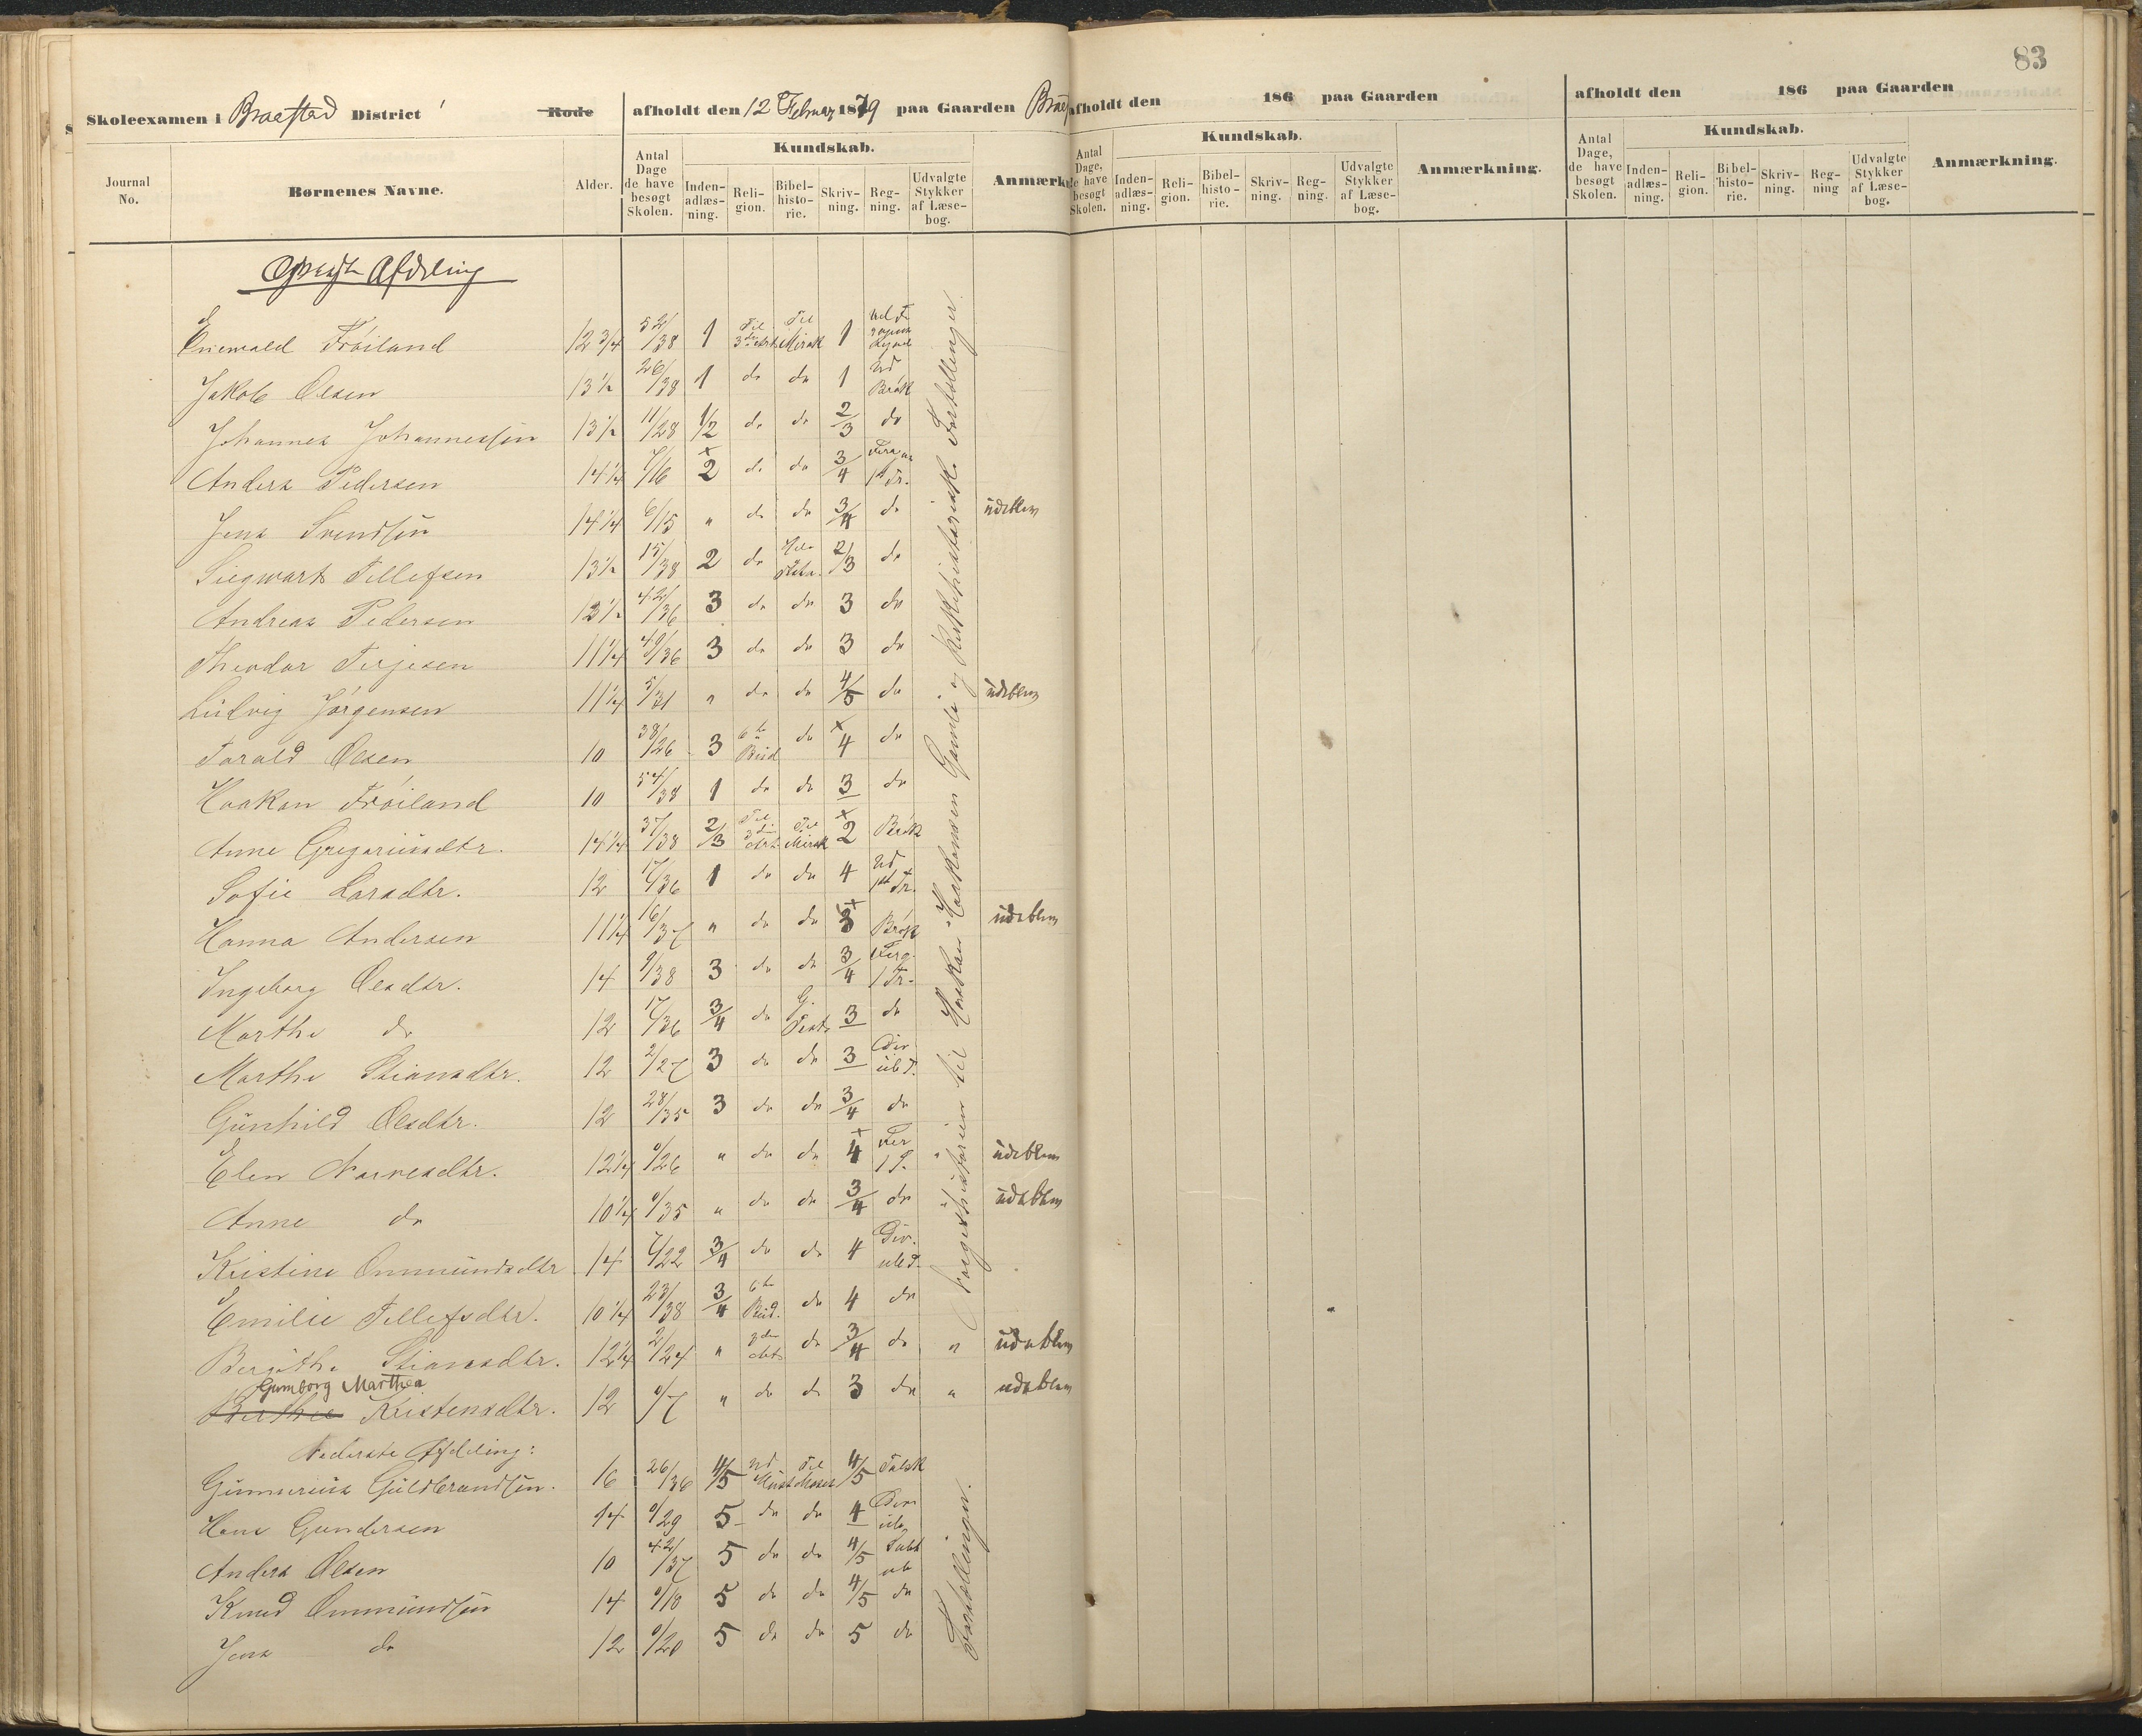 83
Skoleexamen i Braastad District Rode afholdt den 12 Februar 1879 paa Gaarden
afholdt den 186 paa Gaarden
afholdt den 186 paa Gaarden
Journal No. Børnenes Navne. Alder. Antal Dage de have besøgt Skolen. Kundskab. Inden-adlæs-ning. Reli-gion. Bibel-histo-rie. Skriv-ning. Reg-ning. Udvalgte Stykker af Læse-bog.
Antal Dage, de have besøgt Skolen. Kundskab. Inden-adlæs-ning. Reli-gion. Bibel-histo-rie. Skriv-ning. Reg-ning. Udvalgte Stykker af Læse-bog. Anmærkning.
Antal Dage, de have besøgt Skolen. Kundskab. Inden-adlæs-ning. Reli-gion. Bibel-histo-rie. Skriv-ning. Reg-ning Udvalgte Stykker af Læse-bog. Anmærkning.
Øverste Afdeling
Enewald Frøiland 12 3/4 52/38 1 Til 3die Art. Til Mirak 1
Jakob Olsen 13 1/2 26/38 1 do do 1 Ud Brøk
Johannes Johannessen 13 1/2 11/28 1/2 do do 2/3 do
Anders Pedersen 14 1/4 7/16 2 do do 3/4
Jens Svendsen 14 1/4 6/15 " do do 3/4 do udeblev
Siegwart Tellefsen 13 1/2 15/38 2 do 2/3 do
Andreas Pedersen 12 1/2 42/36 3 do do 3 do
Theodor Terjesen 11 1/4 40/36 3 do do 3 do
Ludvig Jørgensen 11 1/4 5/31 " do do 4/5 do udeblev
Tarald Olsen 10 38/26 3 6te Bud do 4 do
Haakon Frøiland 10 54/38 1 do do 3 do
Anne Gregoriusdtr. 14 1/4 37/38 2/3 Til 3die Art. Til Mirak 2 Brøk
Sofie Larsdtr. 12 17/36 1 do do 4 Ud 1st Tr.
Hanna Andersen 11 1/4 16/37 " do do 3 Brøk udeblev
Ingeborg Olsdtr. 14 9/38 3 do do 3/4
Marthe do 12 17/36 3/4 do G. Test. 3 do
Marthe Stiansdtr. 12 2/27 3 do do 3 Div. ub T.
Gunhild Olsdtr. 12 28/35 3 do do 3/4 do
Elen Narvesdtr. 12 1/4 0/26 " do do 4 " udeblev
Anne do 10 1/4 0/35 " do do 3/4 do " udeblev
Kristine Ommundsdtr 14 7/22 3/4 do do 4 Div. ub T.
Emilie Tellefsdtr. 10 1/4 23/38 3/4 6te Bud. do 4 do
Bergithe Stiansdtr. 12 1/4 2/24 " do 3/4 do " udeblev
Gumborg Marthea
Berthee Kristensdtr. 12 0/7 " do do 3 do " udeblev
Norgeshistorien til Haakon Haakonsen Gamle og Kirkehistoriske Fortællinger.
Nederste Afdeling:
Gunnerius Guldbrandsen. 16 26/36 4/5 Til Moses 4/5
Hans Gundersen 14 0/29 5 do do 4
Anders Olsen 10 42/37 5 do do 4/5
Knud Ommundsen 14 0/18 5 do do 4/5 do
Jens do 12 0/20 5 do do 5 do
Fortællinger.